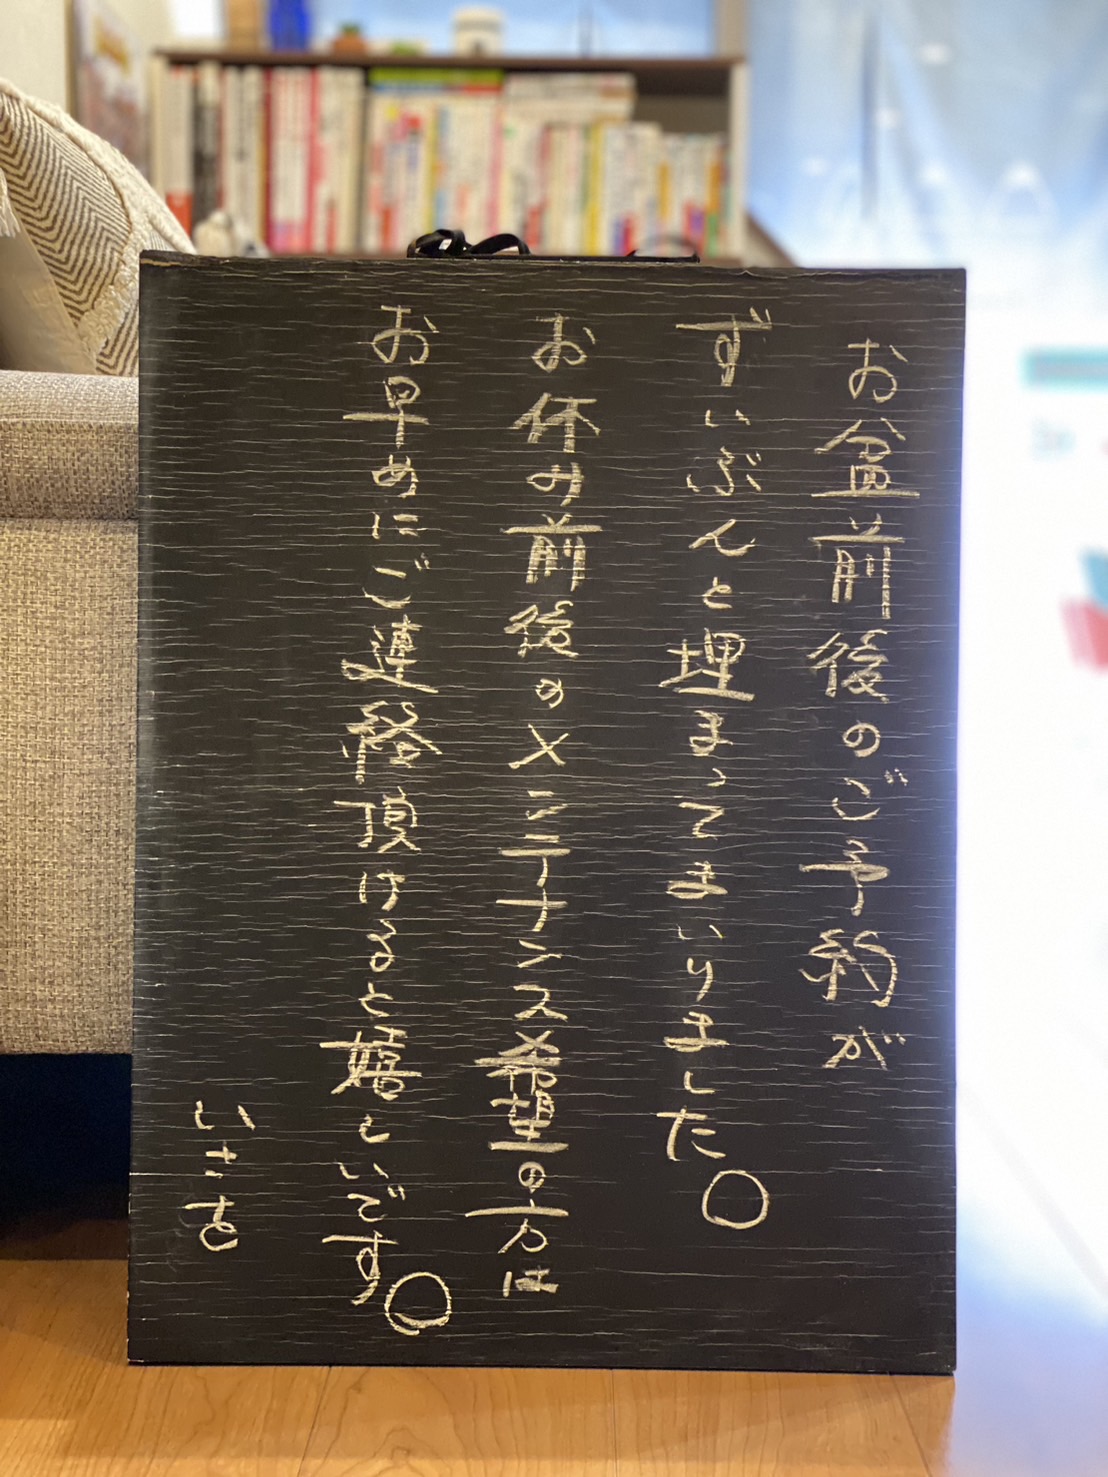 お盆前後のご予約が
ずいぶんと埋まってまいりました。
お休み前後のメンテナンス希望の方は
お早めにご連絡頂けると嬉しいです。
いさを